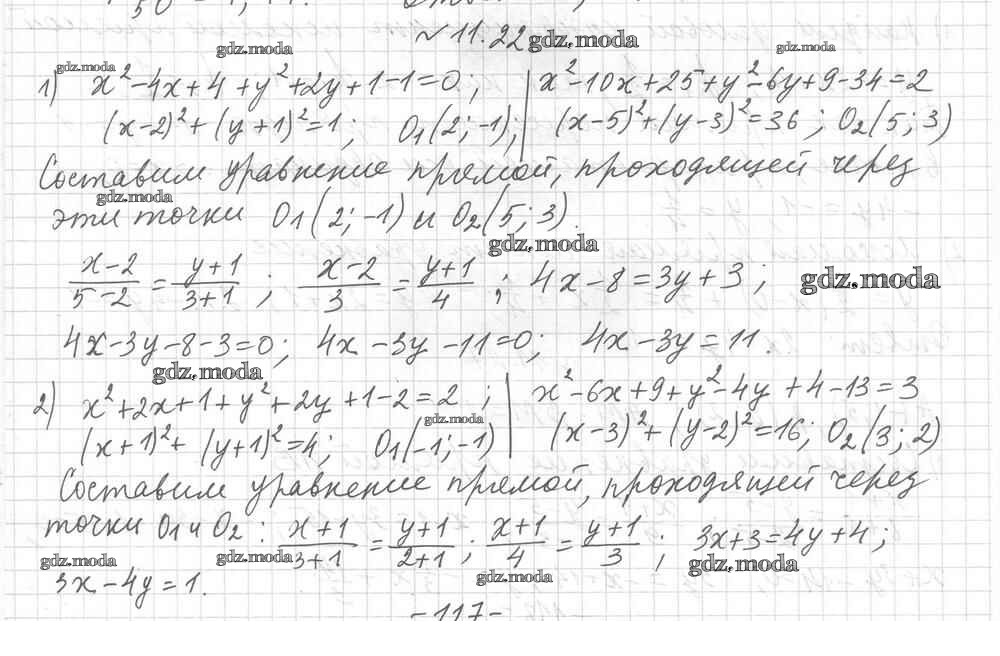 № 11.22 gdz.moda
gdz.moda gdz.moda
gdz.moda
1) x²-4x+4+y²+2y+1-1=0; | x²-10x+25+y²-6y+9-34=2
(x-2)²+(y+1)²=1; O1(2;-1); | (x-5)²+(y-3)²=36; O2(5;3)
Составим уравнение прямой, проходящей через
gdz.moda
эти точки O1(2;-1) и O2(5;3).
gdz.moda
x-2/5-2 = y+1/3+1; x-2/3 = y+1/4; 4x-8=3y+3; gdz.moda
4x-3y-8-3=0; 4x-3y-11=0; 4x-3y=11.
gdz.moda
2) x²+2x+1+y²+2y+1-2=2; | x²-6x+9+y²-4y+4-13=3
gdz.moda
(x+1)²+(y+1)²=4; O1(-1;-1) | (x-3)²+(y-2)²=16; O2(3;2)
Составим уравнение прямой, проходящей через
точки O1 и O2: x+1/3+1 = y+1/2+1; x+1/4 = y+1/3; 3x+3=4y+4;
gdz.moda gdz.moda gdz.moda
3x-4y=1. gdz.moda
-117-